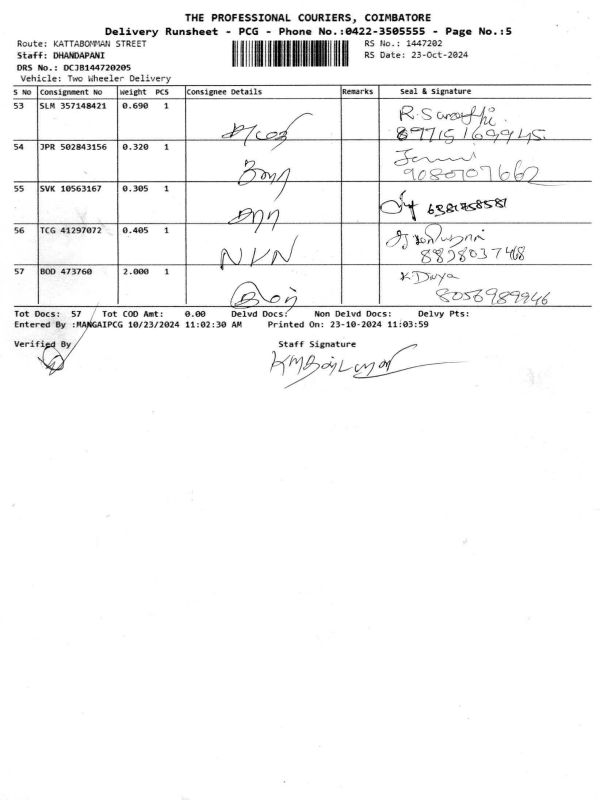 THE PROFESSIONAL COURIERS, COIMBATORE
Delivery Runsheet - PCG - Phone No.:0422-3505555 - Page No.:5
Route: KATTABOMMAN STREET RS No.: 1447202
Staff: DHANDAPANI RS Date: 23-Oct-2024
DRS No.: DCJB144720205
Vehicle: Two Wheeler Delivery
S No Consignment No Weight PCS Consignee Details Remarks Seal & Signature
53 SLM 357148421 0.690 1
54 JPR 502843156 0.320 1
9080707662
55 SVK 10563167 0.305 1
6381758581
56 TCG 41297072 0.405 1 NVN
8898037468
57 BOD 473760 2.000 1 K Divya
8056989946
Tot Docs: 57 Tot COD Amt: 0.00 Delvd Docs: Non Delvd Docs: Delvy Pts:
Entered By :MANGAIPCG 10/23/2024 11:02:30 AM Printed On: 23-10-2024 11:03:59
Verified By Staff Signature